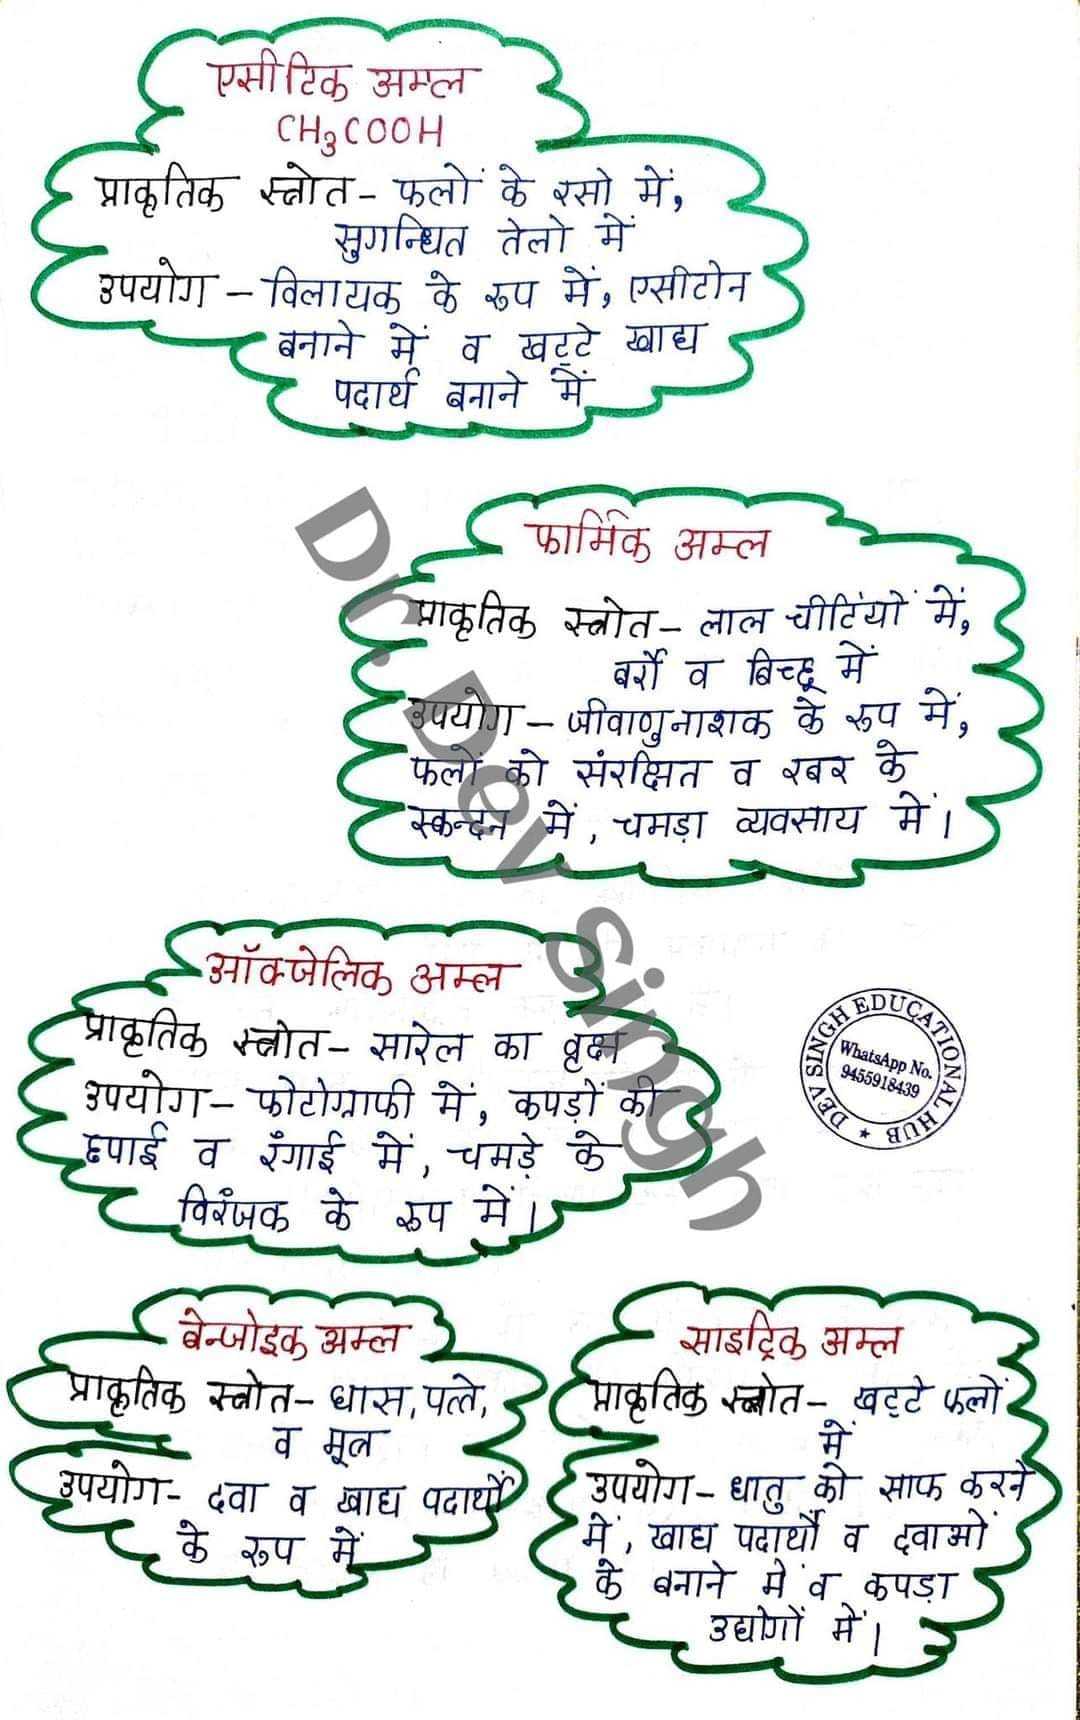 एसीटिक अम्ल
CH₃COOH
प्राकृतिक स्त्रोत - फलों के रसो में,
सुगन्धित तेलो में
उपयोग - विलायक के रूप में, एसीटोन
बनाने में व खट्टे खाद्य
पदार्थ बनाने में
फार्मिक अम्ल
प्राकृतिक स्त्रोत - लाल चीटियों में,
बर्रो व बिच्छू में
उपयोग - जीवाणुनाशक के रूप में,
फलों को संरक्षित व रबर के
स्कन्दन में, चमड़ा व्यवसाय में।
ऑक्जेलिक अम्ल
प्राकृतिक स्त्रोत - सारेल का वृक्ष
उपयोग - फोटोग्राफी में, कपड़ों की
छपाई व रंगाई में, चमड़े के
विरंजक के रूप में।
DEV SINGH EDUCATIONAL HUB
WhatsApp No.
9455918439
बेन्जोइक अम्ल
प्राकृतिक स्त्रोत - घास, पत्ते,
व मूल
उपयोग - दवा व खाद्य पदार्थों
के रूप में
साइट्रिक अम्ल
प्राकृतिक स्त्रोत - खट्टे फलों
में
उपयोग - धातु को साफ करने
में, खाद्य पदार्थों व दवाओं
के बनाने में व कपड़ा
उद्योगों में।
Dr. Dev singh